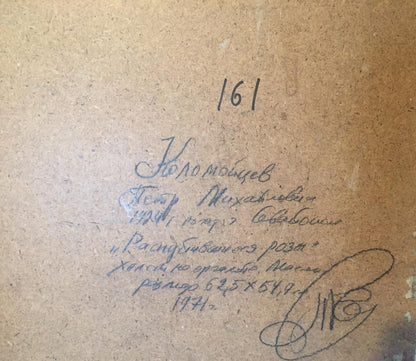 161
Коломойцев
Петр Михайлович
1924 г. рожд.
„Распустившиеся розы"
холст на оргалите, масло
размер 62,5 х 54,
1971 г.